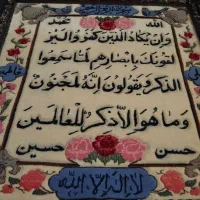 الله
محمد
وإن يكاد الذين كفروا ليز
لقونك بأبصارهم لما سمعوا
الذكر ويقولون إنه لمجنون
وما هو إلا ذكر للعالمين
حسن
حسين
لا إله إلا الله